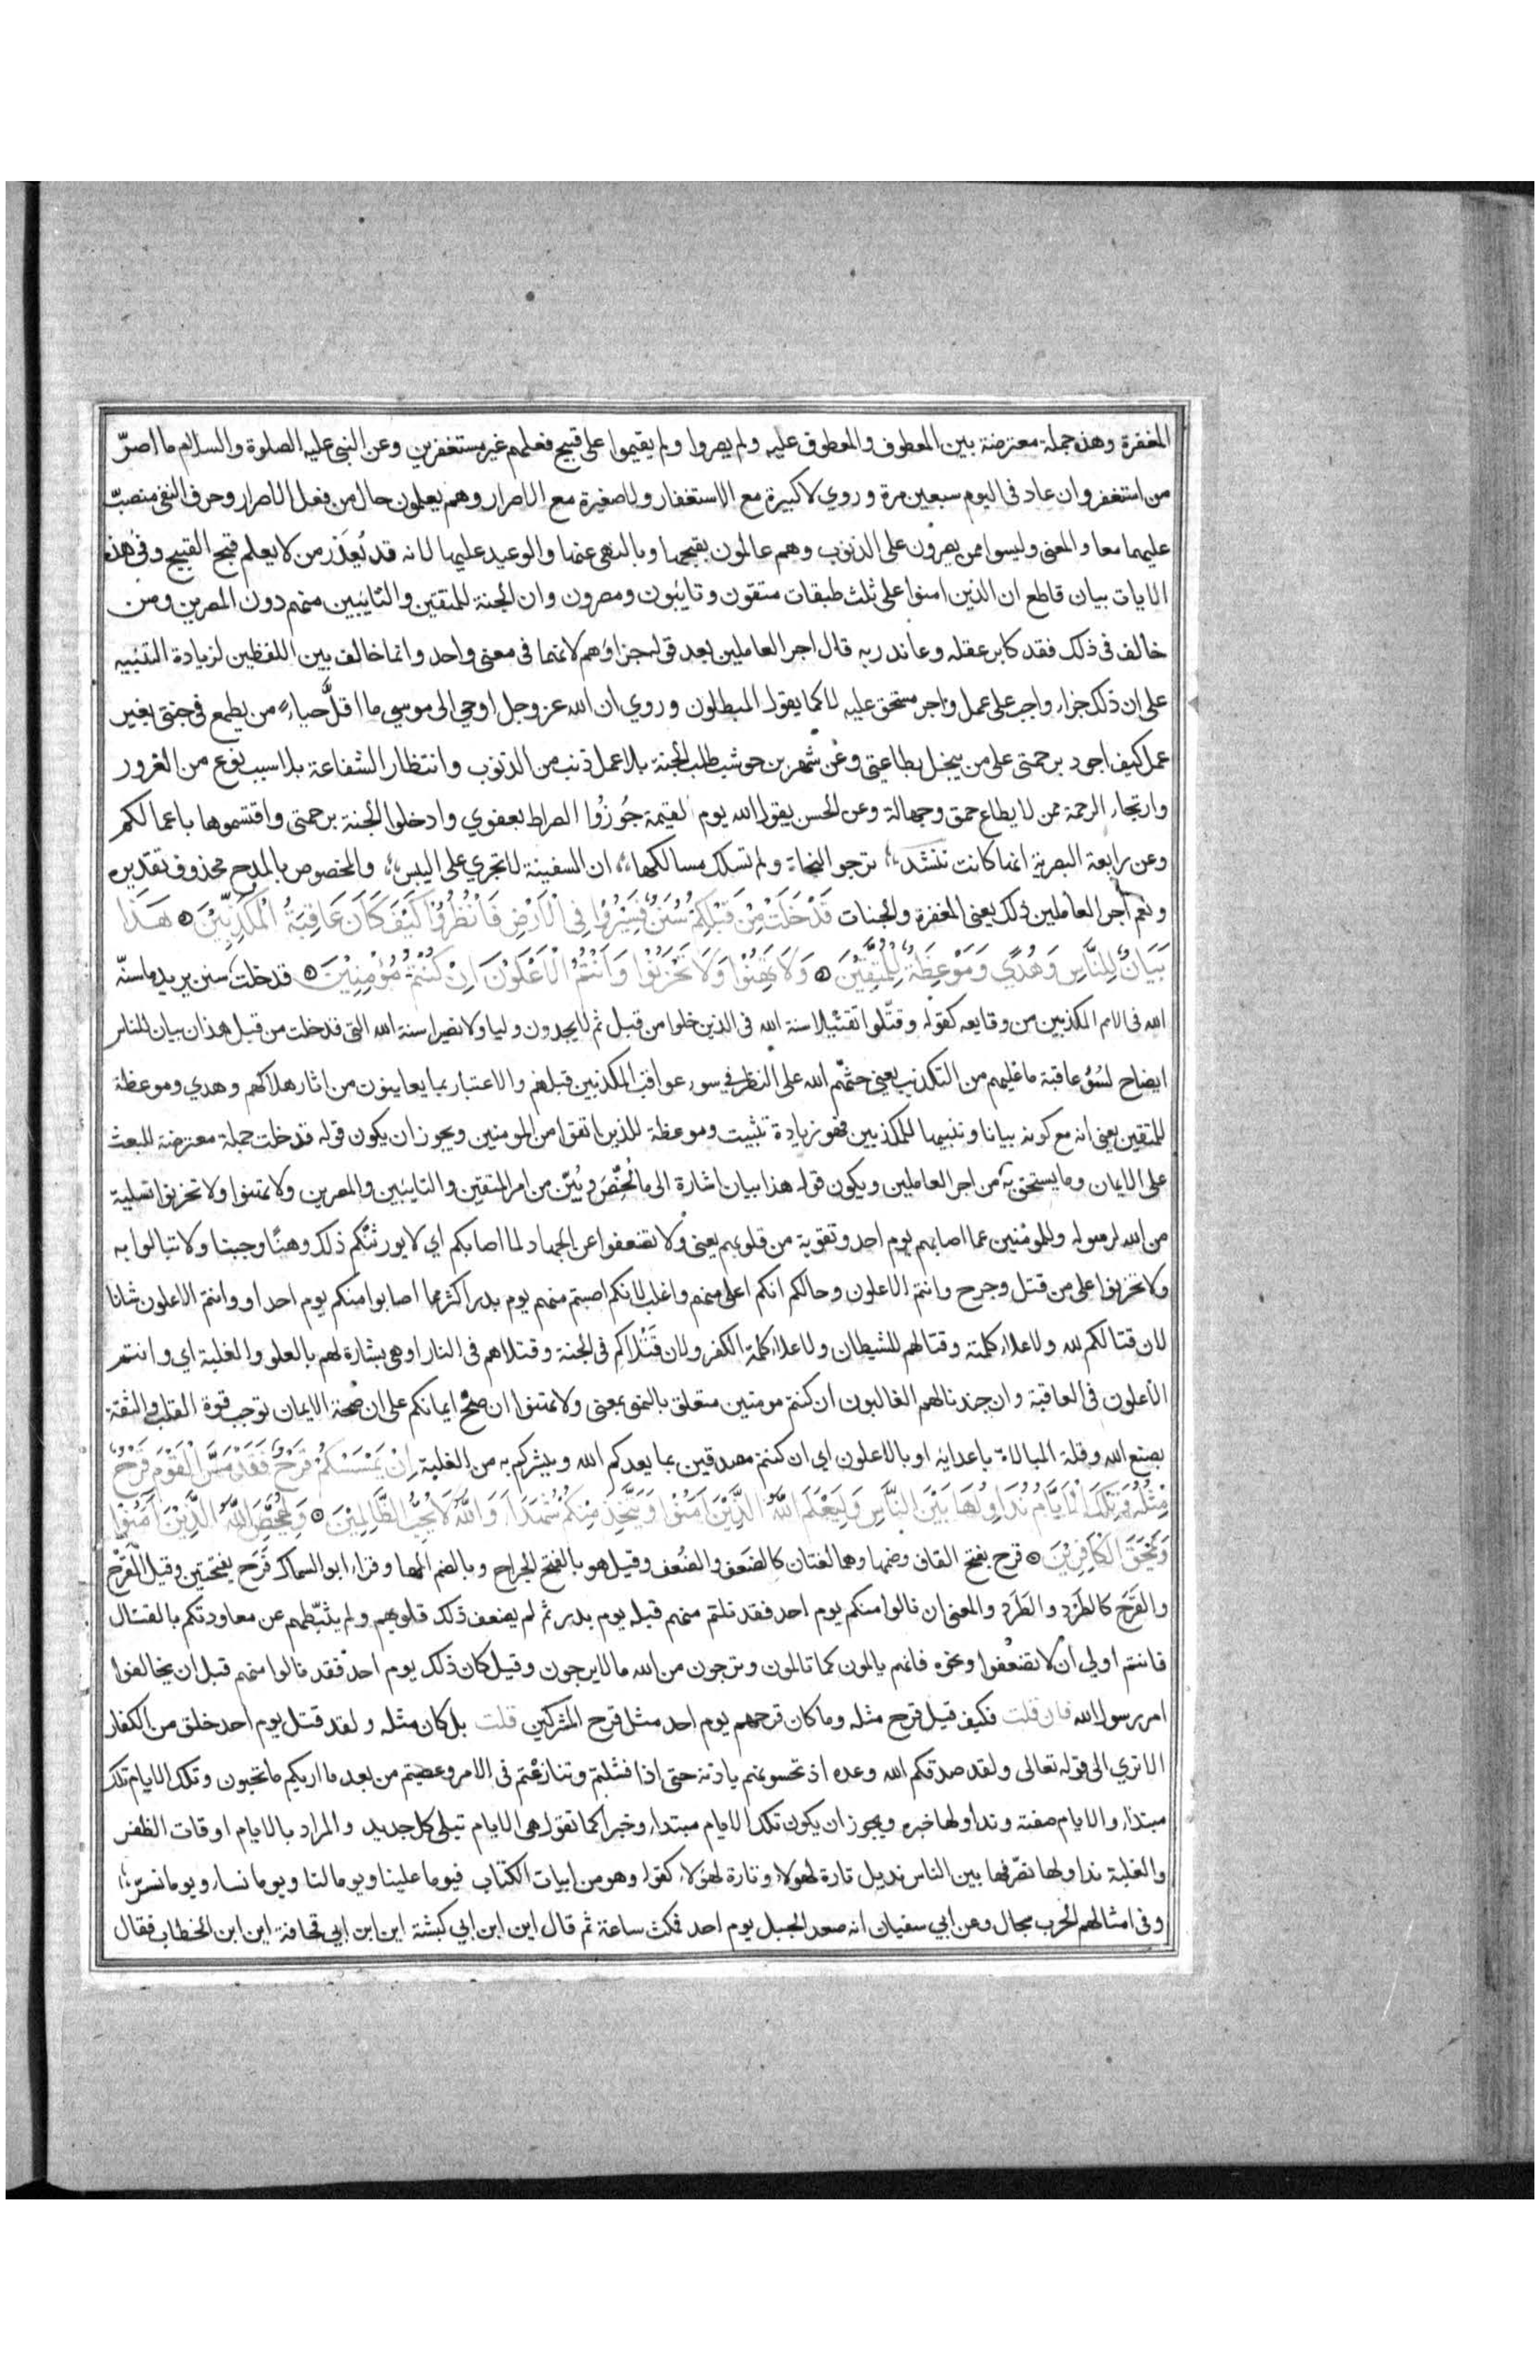 المغفرة وهذه جملة معترضة بين المعطوف والمعطوف عليه ولم يصروا ولم يقيموا على قبيح فعلهم غير مستغفرين وعن النبي عليه الصلوة والسلام ما اصرّ
من استغفر وان عاد في اليوم سبعين مرة وروي لا كبيرة مع الاستغفار ولا صغيرة مع الاصرار وهم يعلمون حال من فعل الاصرار وحرف النفي منصبّ
عليهما معا والمعنى وليسوا ممن يصرون على الذنوب وهم عالمون بقبحها وبالنهي عنها والوعيد عليها لانه قد يُعذَر من لا يعلم قبح القبيح وفي هذه
الايات بيان قاطع ان الذين امنوا على ثلث طبقات متقون وتايبون ومصرون وان الجنة للمتقين والتايبين منهم دون المصرين ومن
خالف في ذلك فقد كابر عقله وعاند ربه قال اجر العاملين بعد قوله جزاؤهم لانهما في معنى واحد وانما خالف بين اللفظين لزيادة التنبيه
على ان ذلك جزاء واجب على عمل واجر مستحق عليه لا كما يقول المبطلون وروي ان الله عز وجل اوحي الى موسي ما اقلَّ حياء من يطمع في جنتي بغير
عمل كيف اجود برحمتي على من يبخل بطاعتي وعن شهر بن حوشب طلب الجنة بلا عمل ذنب من الذنوب وانتظار الشفاعة بلا سبب نوع من الغرور
وارتجاء الرحمة ممن لا يطاع حمق وجهالة وعن الحسن يقول الله يوم القيمة جُوزُوا الصراط بعفوي وادخلوا الجنة برحمتي واقتسموها باعمالكم
وعن رابعة البصرية انها كانت تنشد ترجو النجاة ولم تسلك مسالكها ان السفينة لا تجري على اليبس والمخصوص بالمدح محذوف تقديره
ونعم اجر العاملين ذلك يعني المغفرة والجنات قَدْ خَلَتْ مِنْ قَبْلِكُمْ سُنَنٌ فَسِيْرُوْا فِي الْاَرْضِ فَانْظُرُوْا كَيْفَ كَانَ عَاقِبَةُ الْمُكَذِّبِيْنَ هَذَا
بَيَانٌ لِلنَّاسِ وَهُدًي وَمَوْعِظَةٌ لِلْمُتَّقِيْنَ وَلَا تَهِنُوْا وَلَا تَحْزَنُوْا وَاَنْتُمُ الْاَعْلَوْنَ اِنْ كُنْتُمْ مُؤْمِنِيْنَ قد خلت سنن يريد ما سنّه
الله في الامم المكذبين من وقايعه كقوله وقتّلوا تقتيلا سنة الله في الذين خلوا من قبل ثم لا يجدون وليا ولا نصيرا سنة الله التي قد خلت من قبل هذا بيان للناس
ايضاح لسُوء عاقبة ما عليهم من التكذيب يعني حثّهم الله على النظر في سوء عواقب المكذبين قبلهم والاعتبار بما يعاينون من اثار هلاكهم وهدي وموعظة
للمتقين يعني انه مع كونه بيانا وتنبيها للمكذبين فهو زيادة تثبيت وموعظة للذين اتقوا من المومنين ويجوز ان يكون قوله قد خلت جملة معترضة للبعث
على الايمان وما يستحق به من اجر العاملين ويكون قوله هذا بيان اشارة الى ما لُخِّصَ وبُيّن من امر المتقين والتايبين والمصرين ولا تهنوا ولا تحزنوا تسلية
من الله لرسوله وللمؤمنين عما اصابهم يوم احد وتقوية من قلوبهم يعني ولا تضعفوا عن الجهاد لما اصابكم اي لا يورثنّكم ذلك وهنًا وجبنا ولا تبالوا به
ولا تحزنوا على من قتل وجرح وانتم الاعلون وحالكم انكم اعلى منهم واغلب لانكم اصبتم منهم يوم بدر اكثر مما اصابوا منكم يوم احد او وانتم الاعلون شانا
لان قتالكم لله ولاعلاء كلمته وقتالهم للشيطان ولاعلاء كلمة الكفر ولان قَتْلاكم في الجنة وقتلاهم في النار او هي بشارة لهم بالعلو والغلبة اي وانتم
الاعلون في العاقبة وان جندنا لهم الغالبون ان كنتم مومنين متعلق بالنهي بمعنى ولا تهنوا ان صحَّ ايمانكم على ان صحة الايمان توجب قوة القلب والثقة
بصنع الله وقلة المبالاة باعدايه او بالاعلون اي ان كنتم مصدقين بما يعدكم الله ويبشركم به من الغلبة اِنْ يَمْسَسْكُمْ قَرْحٌ فَقَدْ مَسَّ الْقَوْمَ قَرْحٌ
مِثْلُهُ وَتِلْكَ الْاَيَّامُ نُدَاوِلُهَا بَيْنَ النَّاسِ وَلِيَعْلَمَ اللّٰهُ الَّذِيْنَ اٰمَنُوْا وَيَتَّخِذَ مِنْكُمْ شُهَدَاءَ وَاللّٰهُ لَا يُحِبُّ الظَّالِمِيْنَ وَلِيُمَحِّصَ اللّٰهُ الَّذِيْنَ اٰمَنُوْا
وَيَمْحَقَ الْكَافِرِيْنَ قرح بفتح القاف وضمها وهما لغتان كالضَعف والضُعف وقيل هو بالفتح الجراح وبالضم المها وقراء ابو السماك قَرَح بفتحتين وقيل القَرْح
والقَرَح كالطَرْد والطَرَد والمعنى ان نالوا منكم يوم احد فقد نلتم منهم قبله يوم بدر ثم لم يضعف ذلك قلوبهم ولم يثبّطهم عن معاودتكم بالقتال
فانتم اولي ان لا تضعفوا ونحوه فانهم يالمون كما تالمون وترجون من الله ما لا يرجون وقيل كان ذلك يوم احد فقد نالوا منهم قبل ان يخالفوا
امر رسول الله فان قلت فكيف قيل قرح مثله وما كان قرحهم يوم احد مثل قرح المشركين قلت بل كان مثله ولقد قتل يوم احد خلق من الكفار
الا تري الى قوله تعالى ولقد صدقكم الله وعده اذ تحسونهم باذنه حتى اذا فشلتم وتنازعتم في الامر وعصيتم من بعد ما اريكم ما تحبون وتلك الايام تلك
مبتداء والايام صفته ونداولها خبره ويجوز ان يكون تلك الايام مبتداء وخبرا كما تقول هي الايام تبلى كل جديد والمراد بالايام اوقات الظفر
والغلبة نداولها نصرّفها بين الناس نديل تارة لهولاء وتارة لهؤلاء كقوله وهو من ابيات الكتاب فيوما علينا ويوما لنا ويوما نساء ويوما نسرّ
وفي امثالهم الحرب سجال وعن ابي سفيان انه صعد الجبل يوم احد فمكث ساعة ثم قال اين ابن ابي كبشة اين ابن ابي قحافة اين ابن الخطاب فقال